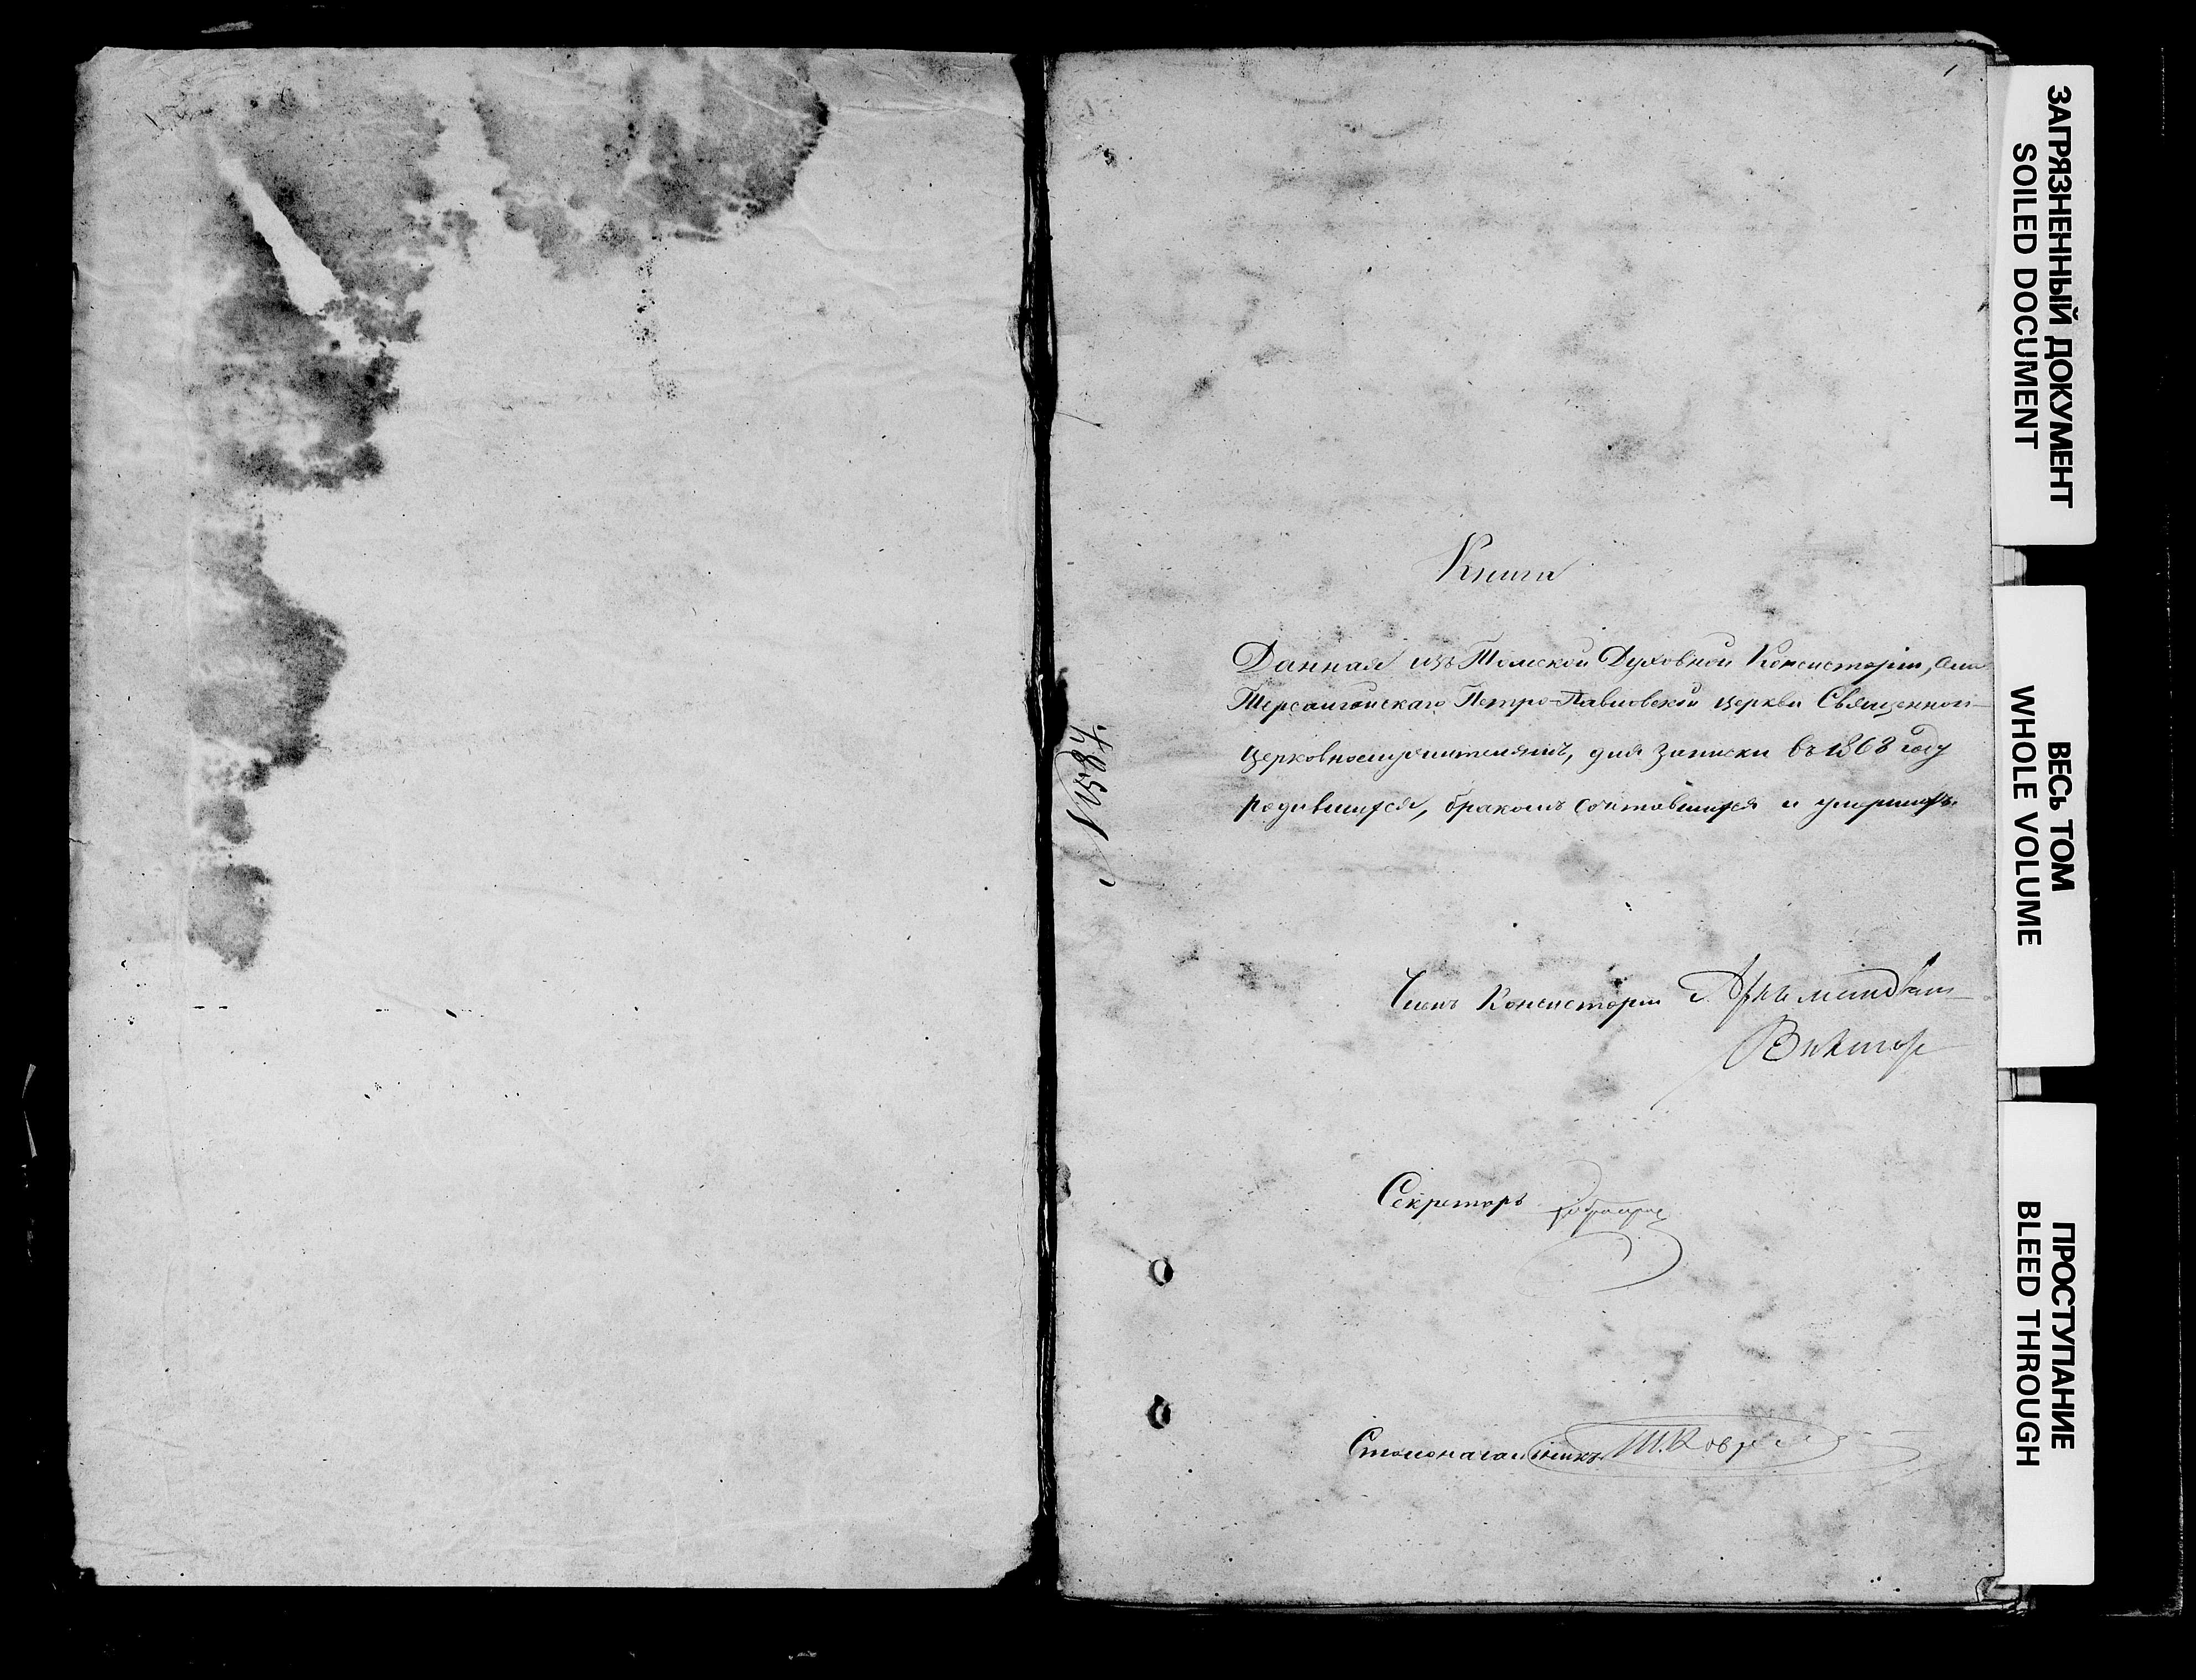 1
Книга
Данная изъ Томской Духовной Консисторіи,
Петро-Павловской церкви Священно-
церковнослужителямъ, для записки въ 1868 году
родившихся, бракомъ сочтавшихся и умершихъ.
N 1587.
Членъ Консисторіи Архимандритъ
Викторъ
Секретарь
Столоначальникъ
ЗАГРЯЗНЕННЫЙ ДОКУМЕНТ
SOILED DOCUMENT
ВЕСЬ ТОМ
WHOLE VOLUME
ПРОСТУПАНИЕ
BLEED THROUGH